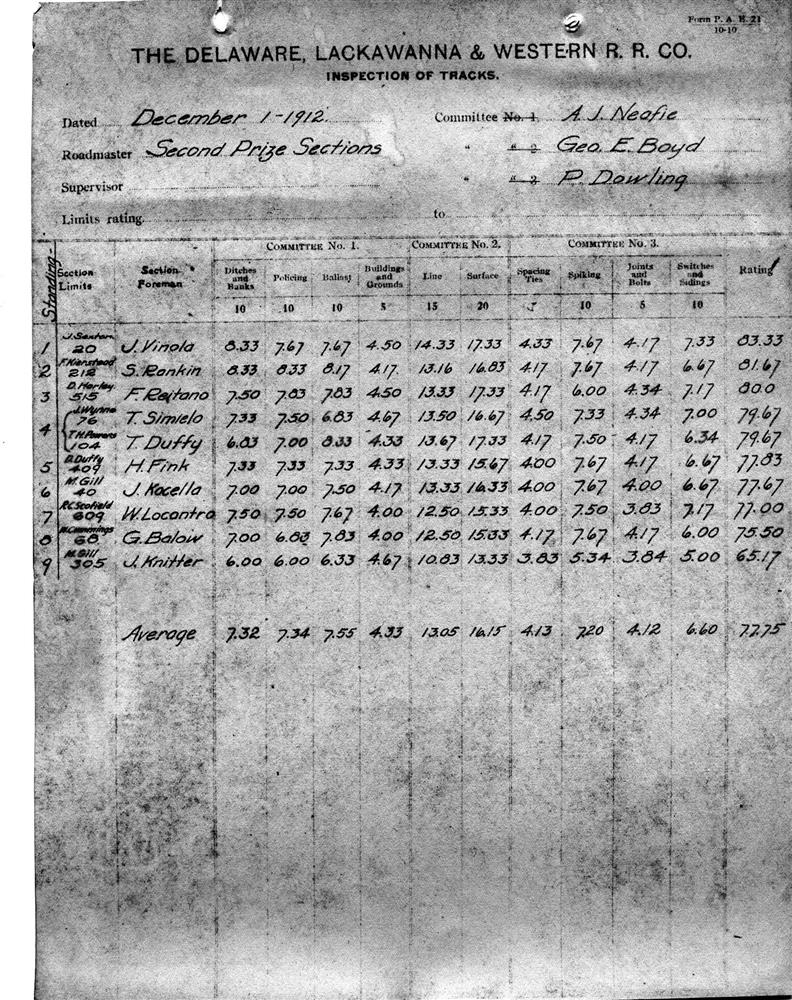 Form P. A. H. 21
10-10
THE DELAWARE, LACKAWANNA & WESTERN R. R. CO.
INSPECTION OF TRACKS.
Dated December 1-1912. Committee No. 1 A. J. Neafie
Roadmaster Second Prize Sections " " 2 Geo. E. Boyd
Supervisor " " 3 P. Dowling
Limits rating to
COMMITTEE No. 1. COMMITTEE No. 2. COMMITTEE No. 3.
Standing- Section Limits Section Foreman Ditches and Banks Policing Ballast Buildings and Grounds Line Surface Spacing Ties Spiking Joints and Bolts Switches and Sidings Rating
10 10 10 5 15 20 5 10 5 10
1 J. Sexton 20 J. Vinola 8.33 7.67 7.67 4.50 14.33 17.33 4.33 7.67 4.17 7.33 83.33
2 F. Kierstead 212 S. Rankin 8.33 8.33 8.17 4.17 13.16 16.83 4.17 7.67 4.17 6.67 81.67
3 D. Harley 515 F. Reitano 7.50 7.83 7.83 4.50 13.33 17.33 4.17 6.00 4.34 7.17 80.0
4 J. Wynne 76 T. Simielo 7.33 7.50 6.83 4.67 13.50 16.67 4.50 7.33 4.34 7.00 79.67
T. H. Powers 104 T. Duffy 6.83 7.00 8.33 4.33 13.67 17.33 4.17 7.50 4.17 6.34 79.67
5 Duffy 409 H. Fink 7.33 7.33 7.33 4.33 13.33 15.67 4.00 7.67 4.17 6.67 77.83
6 M. Gill 40 J. Kocella 7.00 7.00 7.50 4.17 13.33 16.33 4.00 7.67 4.00 6.67 77.67
7 R.C. Scofield 609 W. Locantro 7.50 7.50 7.67 4.00 12.50 15.33 4.00 7.50 3.83 7.17 77.00
8 W. Cummings 68 G. Balow 7.00 6.83 7.83 4.00 12.50 15.33 4.17 7.67 4.17 6.00 75.50
9 M. Gill 305 J. Knitter 6.00 6.00 6.33 4.67 10.83 13.33 3.83 5.34 3.84 5.00 65.17
Average 7.32 7.34 7.55 4.33 13.05 16.15 4.13 7.20 4.12 6.60 77.75